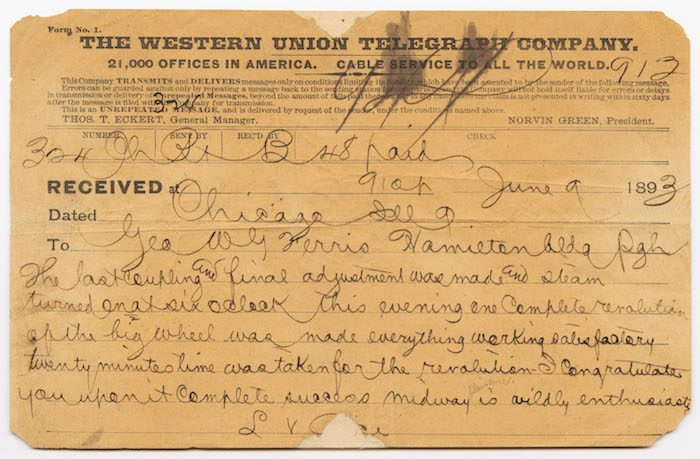 Form No. 1.
THE WESTERN UNION TELEGRAPH COMPANY.
21,000 OFFICES IN AMERICA. CABLE SERVICE TO ALL THE WORLD.
913
This Company TRANSMITS and DELIVERS messages only on conditions limiting its liability, which have been assented to by the sender of the following message.
Errors can be guarded against only by repeating a message back to the sending station for comparison, and the company will not hold itself liable for errors or delays
in transmission or delivery of Unrepeated Messages, beyond the amount of tolls paid thereon, nor in any case where the claim is not presented in writing within sixty days
after the message is filed with the company for transmission.
This is an UNREPEATED MESSAGE, and is delivered by request of the sender, under the conditions named above.
THOS. T. ECKERT, General Manager. NORVIN GREEN, President.
NUMBER SENT BY REC'D BY CHECK
324 Ch B 48 paid
RECEIVED at 910P June 9 1893
Dated Chicago Ill 9
To Geo W G Ferris Hamieton bldg Pgh
The last coupling and final adjustment was made and steam
turned on at six oclock this evening one Complete revolution
of the big wheel was made everything working satesfactory
twenty minutes time was taken for the revolution I Congratulate
you upon it Complete success midway is wildly enthusiastic
L V Rice